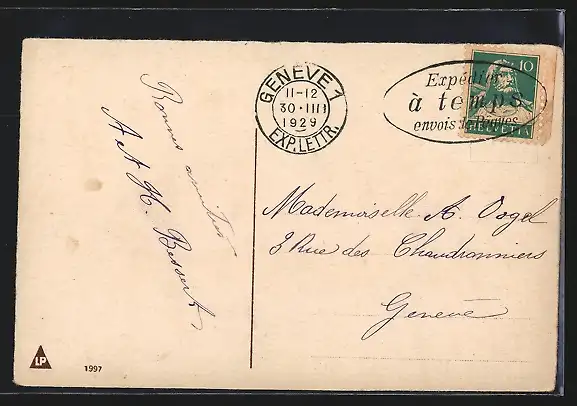 Bonnes amitiés
A et H. Bessert
GENÈVE 1
11-12
30·III
1929
EXP.LETTR.
Expédier
à temps
envois de Pâques
10
HELVETIA
Mademoiselle A. Vogel
3 Rue des Chaudronniers
Genève
LP
1997